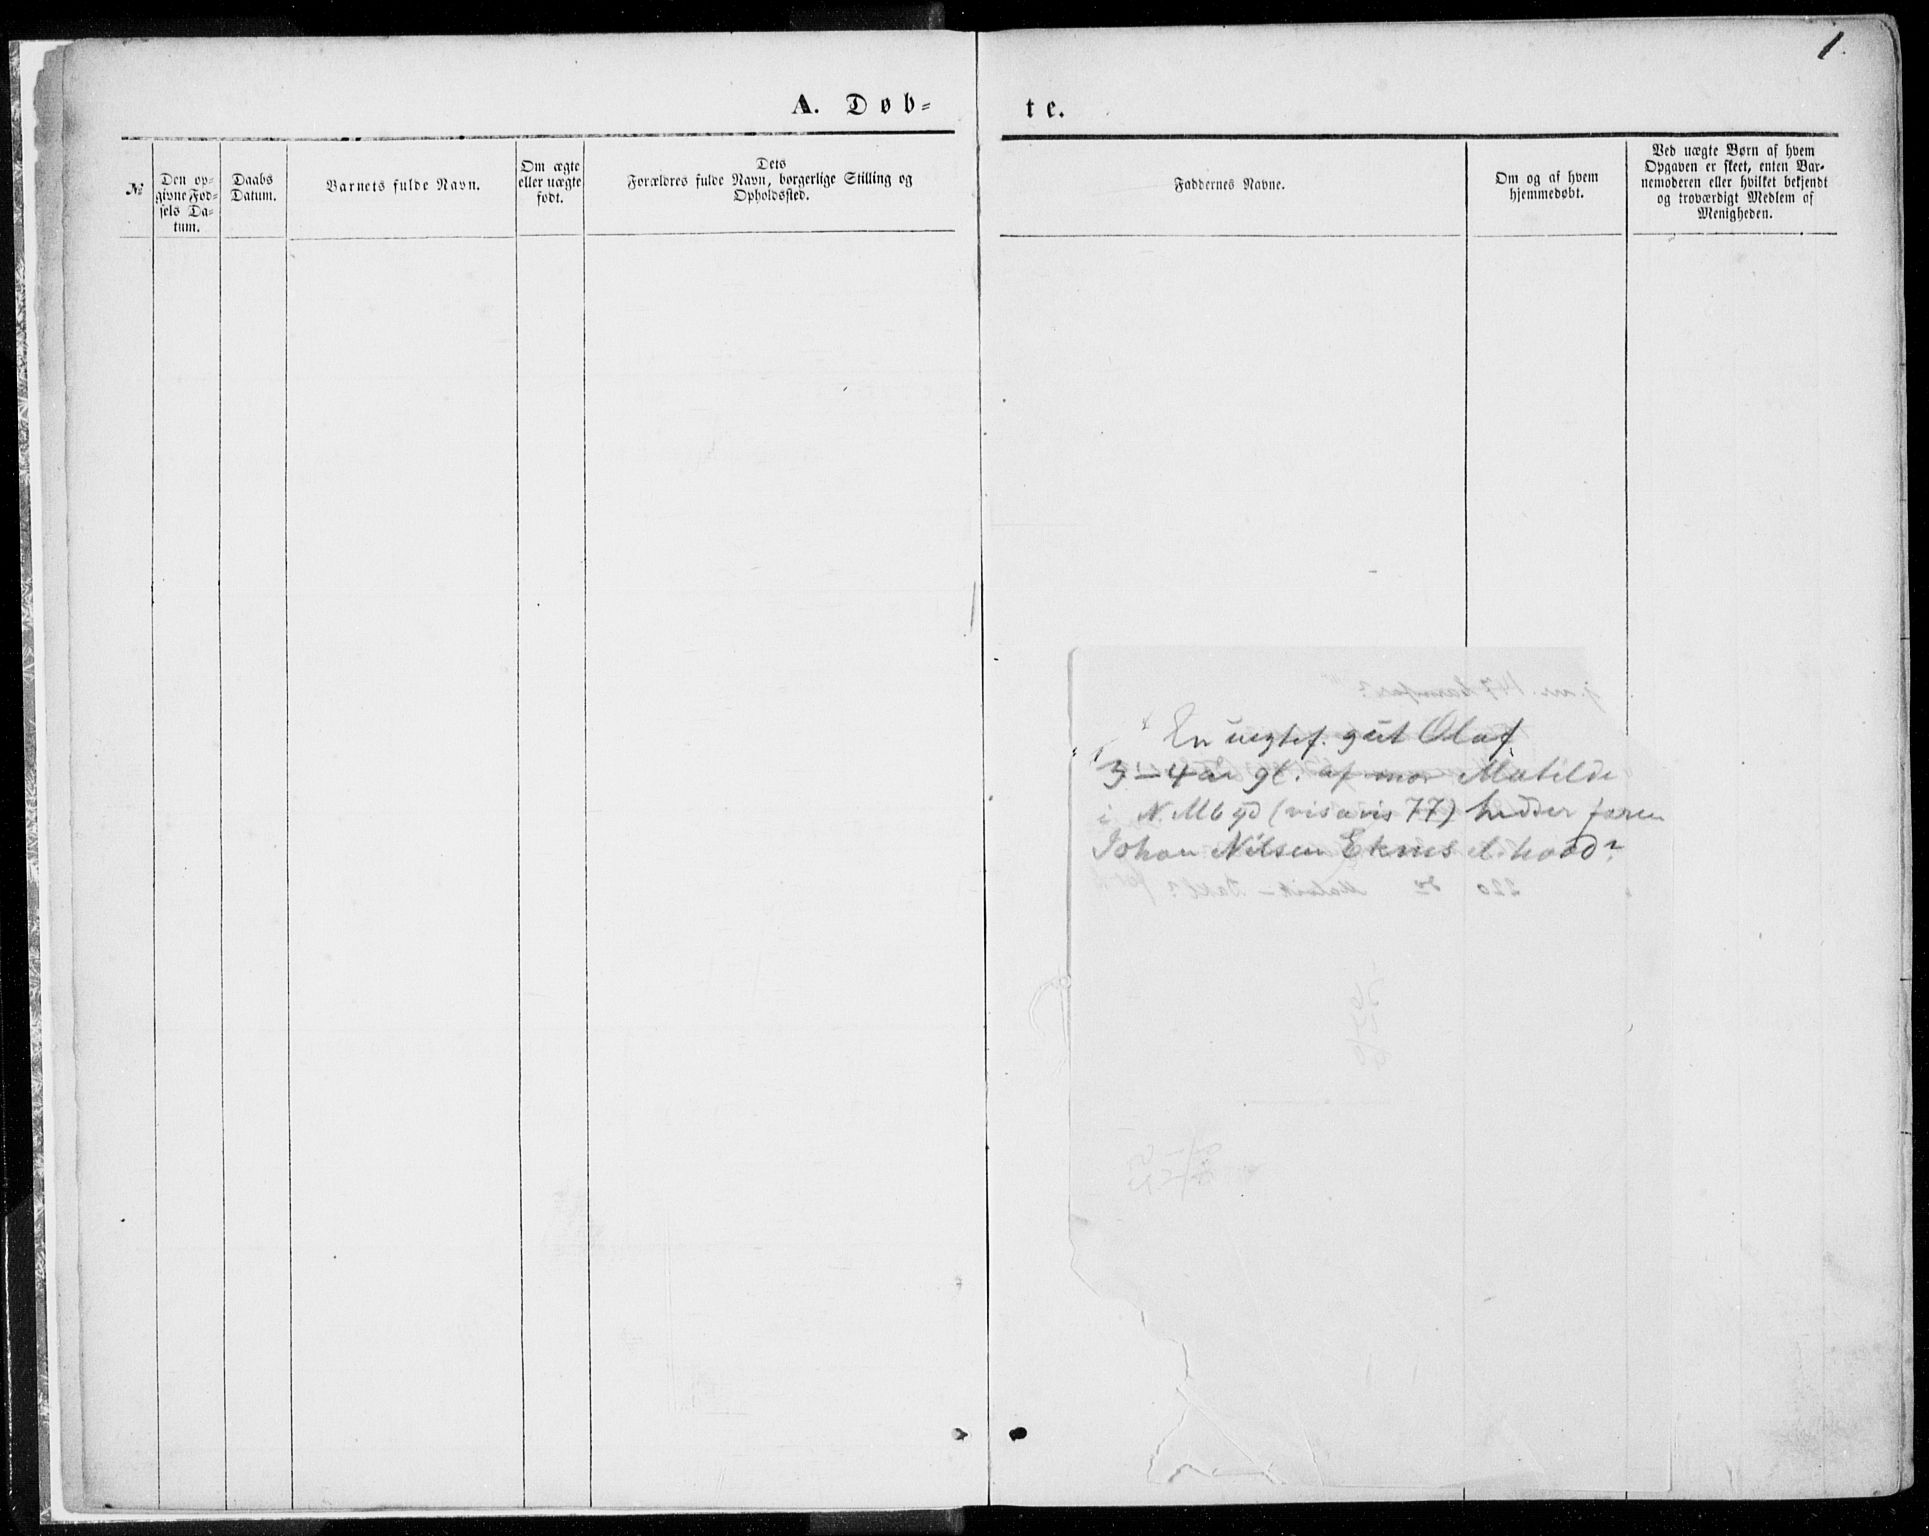 1.
A. Døb-
te.
№
Den op-
givne Fød-
sels Da-
tum.
Daabs
Datum.
Barnets fulde Navn.
Om ægte
eller uægte
født.
Dets
Forældres fulde Navn, borgerlige Stilling og
Opholdssted.
Faddernes Navne.
Om og af hvem
hjemmedøbt.
Ved uægte Børn af hvem
Opgaven er skeet, enten Bar-
nemoderen eller hvilket bekjendt
og troværdigt Medlem af
Menigheden.
En uegtef. gut Olaf
3-4 år gl. af mor Matilde
i N. (visavis 77) hedder faren
Johan Nilsen